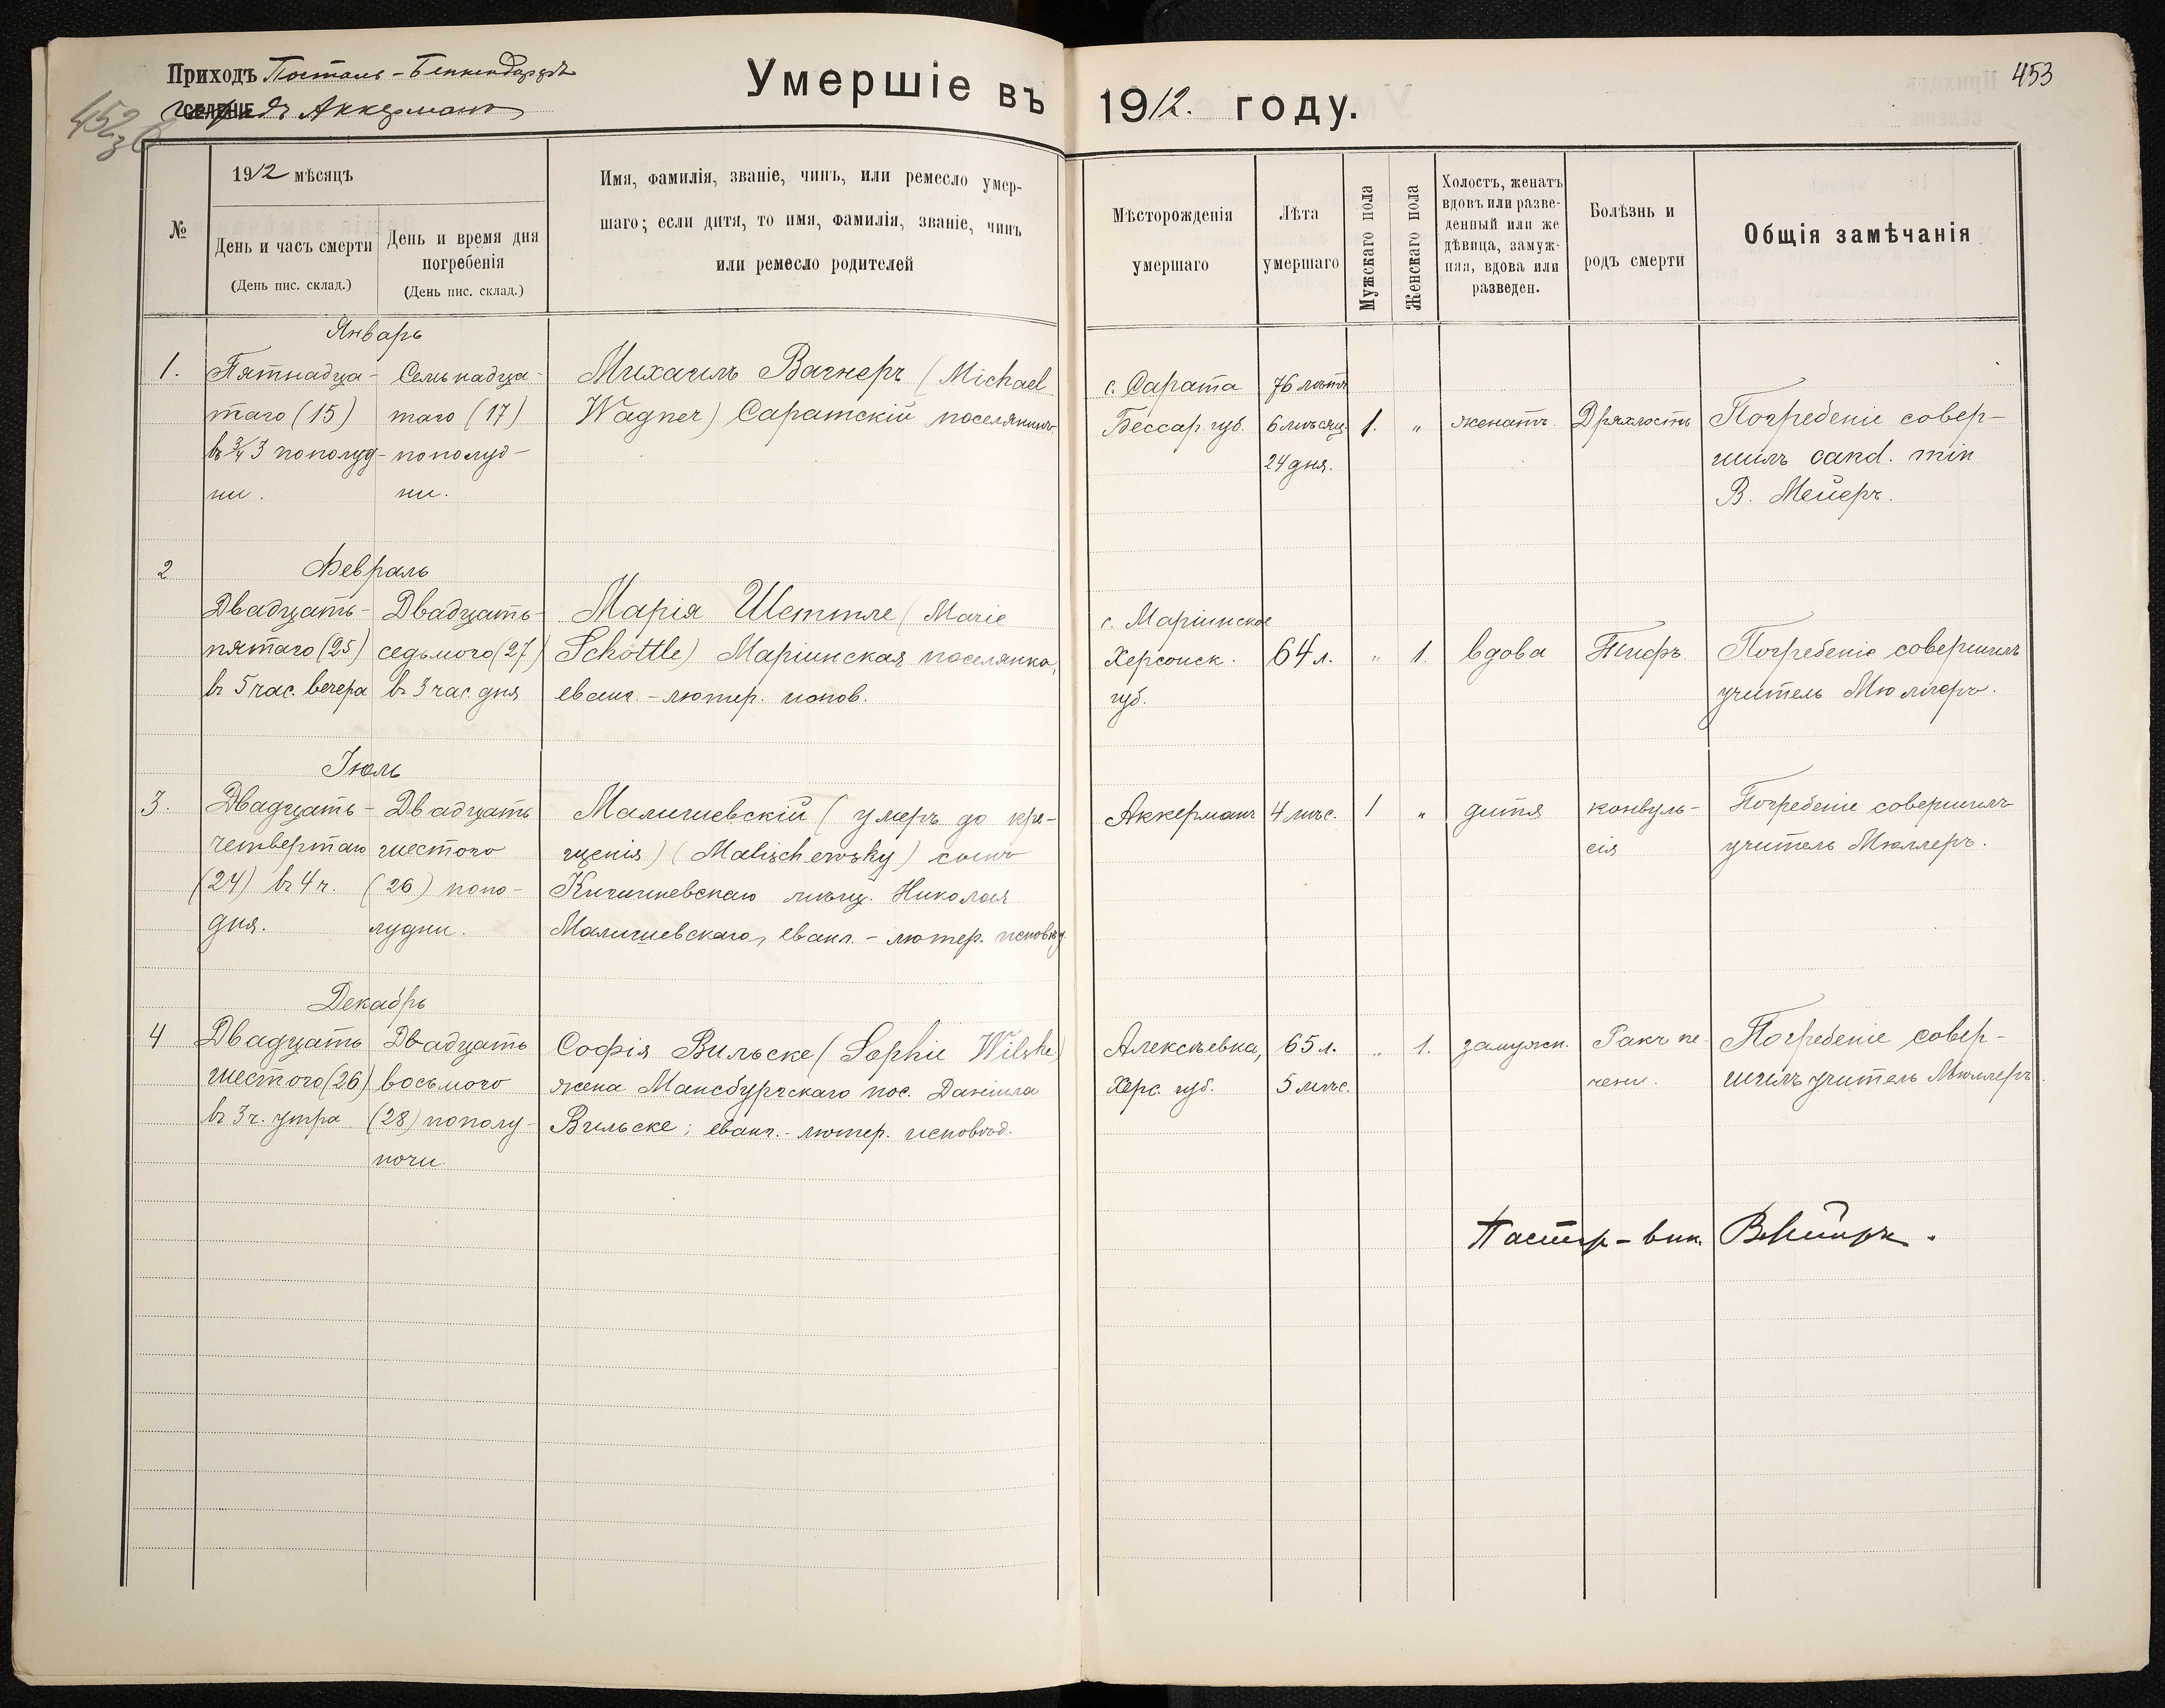 Приходъ Посталь-Бенкендорфъ
городъ Аккерманъ
Умершіе въ 1912. году.
452
453
№
1912 мѣсяцъ
День и часъ смерти
(День пис. склад.)
День и время дня
погребенія
(День пис. склад.)
Имя, фамилія, званіе, чинъ, или ремесло умер-
шаго; если дитя, то имя, фамилія, званіе, чинъ
или ремесло родителей
Мѣсторожденія
умершаго
Лѣта
умершаго
Мужскаго пола
Женскаго пола
Холостъ, женатъ
вдовъ или разве-
денный или же
дѣвица, замуж-
няя, вдова или
разведен.
Болѣзнь и
родъ смерти
Общія замѣчанія
Январь
1.
Пятнадца-
таго (15)
въ 3/4 3 пополуд-
ни.
Семьнадца-
таго (17)
пополуд-
ни.
Михаилъ Вагнеръ (Michael
Wagner) Саратскій поселянинъ
с. Сарата
Бессар. губ.
76 лѣтъ
6 мѣсяц.
24 дня.
1.
"
женатъ.
Дряхлость
Погребеніе совер-
шилъ cand. min
В. Мейеръ.
2
Февраль
Двадцать-
пятаго (25)
въ 5 час. вечера
Двадцать-
седьмого (27)
въ 3 час. дня
Марія Шеттле (Marie
Schöttle) Маріинская поселянка,
еванг.-лютер. испов.
с. Маріинское
Херсонск.
губ.
64 л.
"
1.
вдова
Тифъ
Погребеніе совершилъ
учитель Мюллеръ.
Іюль
3.
Двадцать-
четвертаго
(24) въ 4 ч.
дня.
Двадцать
шестого
(26) попо-
лудни.
Малишевскій (умеръ до кре-
щенія) (Malischewsky) сынъ
Кишиневскаго мѣщ. Николая
Малишевскаго, еванг.-лютер. исповѣд.
Аккерманъ
4 мѣс.
1
"
дитя
конвуль-
сія
Погребеніе совершилъ
учитель Мюллеръ.
Декабрь
4
Двадцать
шестого (26)
въ 3 ч. утра
Двадцать
восьмого
(28) пополу-
ночи.
Софія Вильске (Sophie Wilske)
жена Мансбургскаго пос. Даніила
Вильске; еванг.-лютер. исповѣд.
Алексѣевка,
Херс. губ.
65 л.
5 мѣс.
"
1.
замужн.
Ракъ пе-
чени.
Погребеніе совер-
шилъ учитель Мюллеръ.
Пастор-вик. В. Мейеръ.